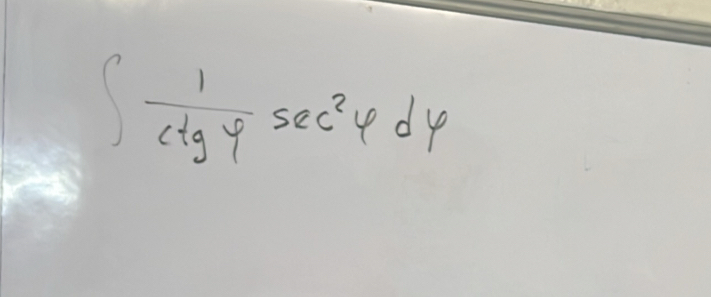 ∫ 1/ctg φ sec²φ dφ